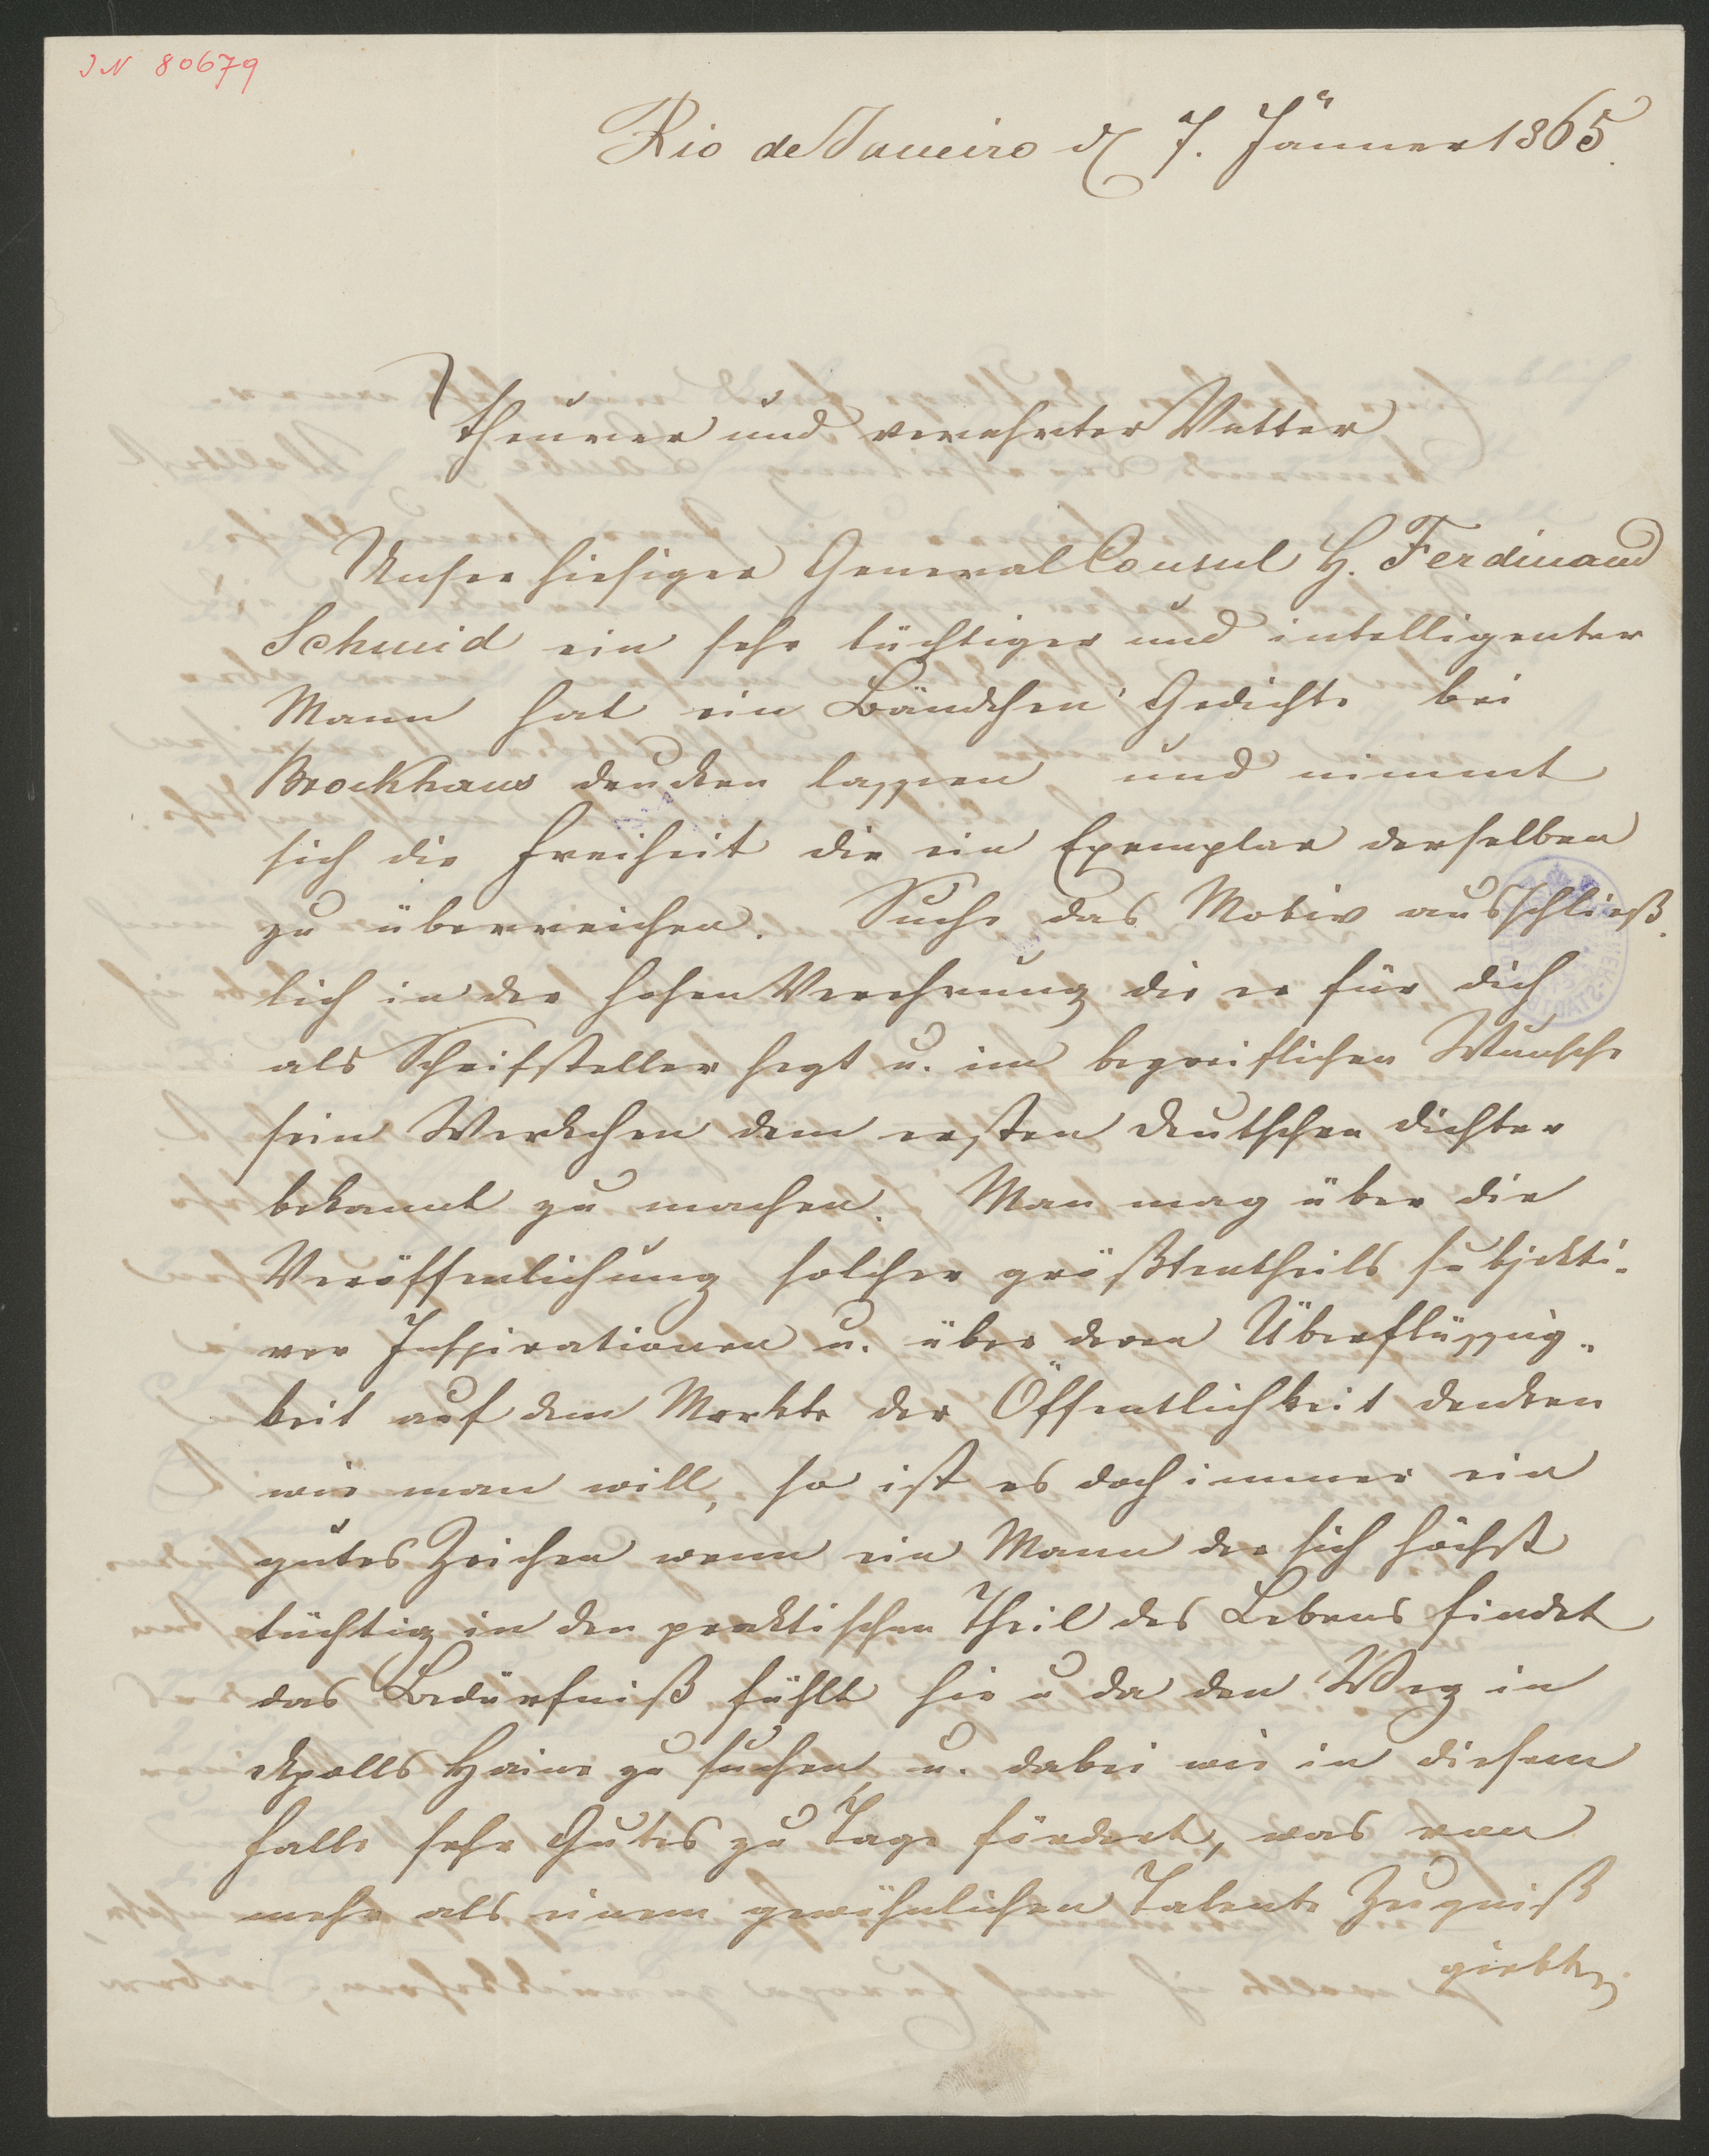 IN 80679
Rio de Janeiro d 7. Jänner 1865.
Theurer und verehrter Vetter
Unser hiesiger General Consul H. Ferdinand
Schmid ein sehr tüchtiger und intelligenter
Mann hat ein Bändchen Gedichte bei
Brockhaus drucken lassen und nimmt
sich die Freiheit dir ein Exemplar derselben
zu überreichen. Suche das Motiv ausschließ-
lich in der hohen Verehrung die er für dich
als Schrifsteller hegt u. im begreiflichen Wunsche
sein Werkchen dem ersten deutschen Dichter
bekannt zu machen. Man mag über die
Veröffenlichung solcher größtentheils subjekti-
ver Inspirationen u. über deren Überflüssig-
keit auf dem Markte der Öffentlichkeit denken
wie man will, so ist es doch immer ein
gutes Zeichen wenn ein Mann der sich höchst
tüchtig in den praktischen Theil des Lebens findet
das Bedürfniß fühlt hie u da den Weg in
Apolls Haine zu suchen u. dabei wie in diesem
Falle sehr Gutes zu Tage fördert, was von
mehr als einem gewöhnlichen Talente Zeugniß
giebt.